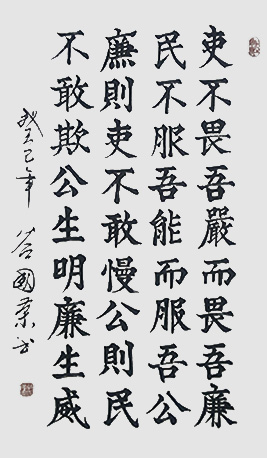 吏不畏吾嚴而畏吾廉
民不服吾能而服吾公
廉則吏不敢慢公則民
不敢欺公生明廉生威
癸巳年 國 书